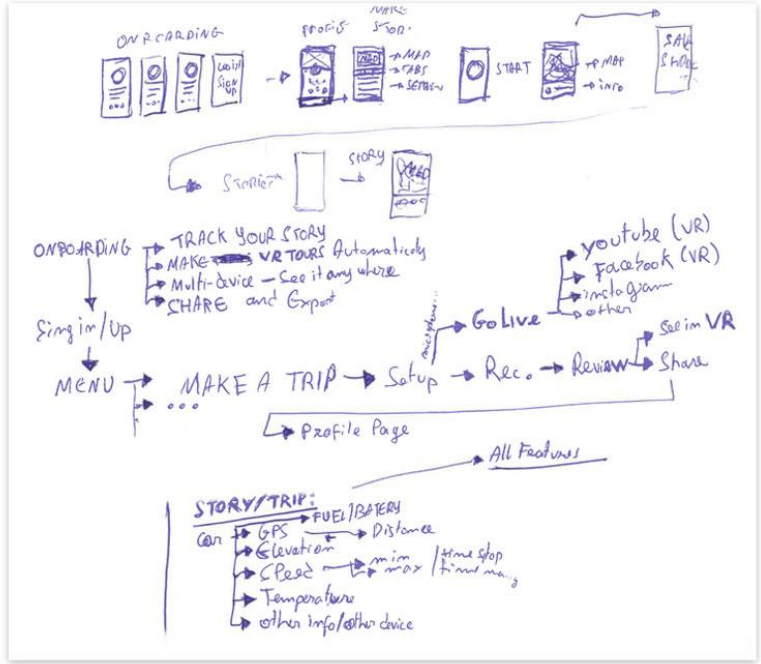 ONBOARDING
MAKE STORY
LOGIN
SIGN
UP
MAP
TABS
START
MAP
info
STORIES
STORY
ONBOARDING
TRACK YOUR STORY
MAKE VR TOURS Automaticly
Multi-device - See it any where
SHARE and Export
Sing in/Up
MENU
MAKE A TRIP
Setup
microphone...
Go Live
youtube (VR)
Facebook (VR)
instagram
other
Rec.
Review
See in VR
Share
...
Profile Page
All Features
STORY/TRIP:
Car
FUEL/BATERY
GPS
Distance
Elevation
Speed
min
max
/time stop
Temperature
other info/other device